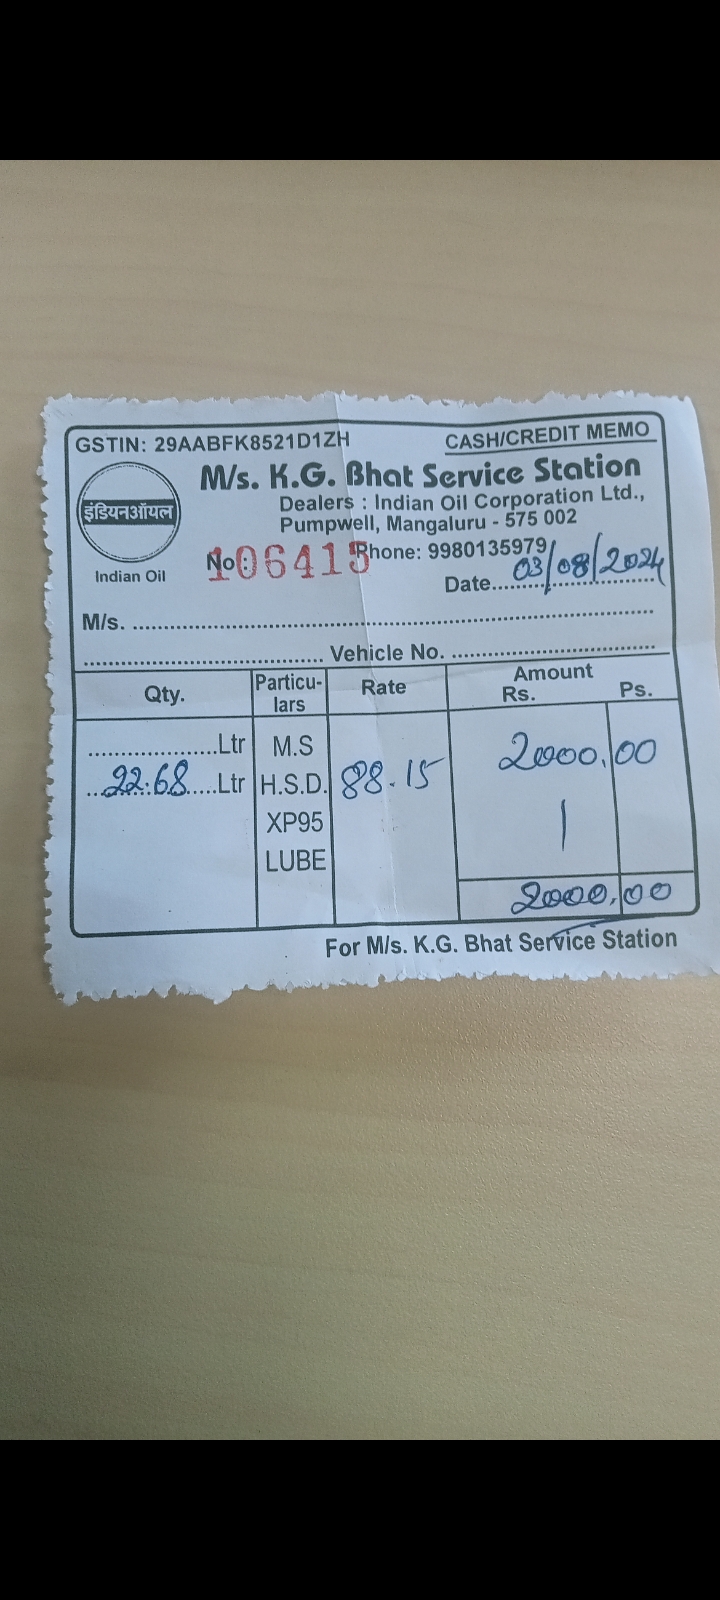 GSTIN: 29AABFK8521D1ZH CASH/CREDIT MEMO
M/s. K.G. Bhat Service Station
इंडियनऑयल
Indian Oil
Dealers : Indian Oil Corporation Ltd.,
Pumpwell, Mangaluru - 575 002
No: 106415 Phone: 9980135979
Date 03/08/2024
M/s.
Vehicle No.
Qty. Particu-lars Rate Amount Rs. Ps.
Ltr M.S 2000.00
22.68 Ltr H.S.D. 88.15
XP95
LUBE
2000.00
For M/s. K.G. Bhat Service Station